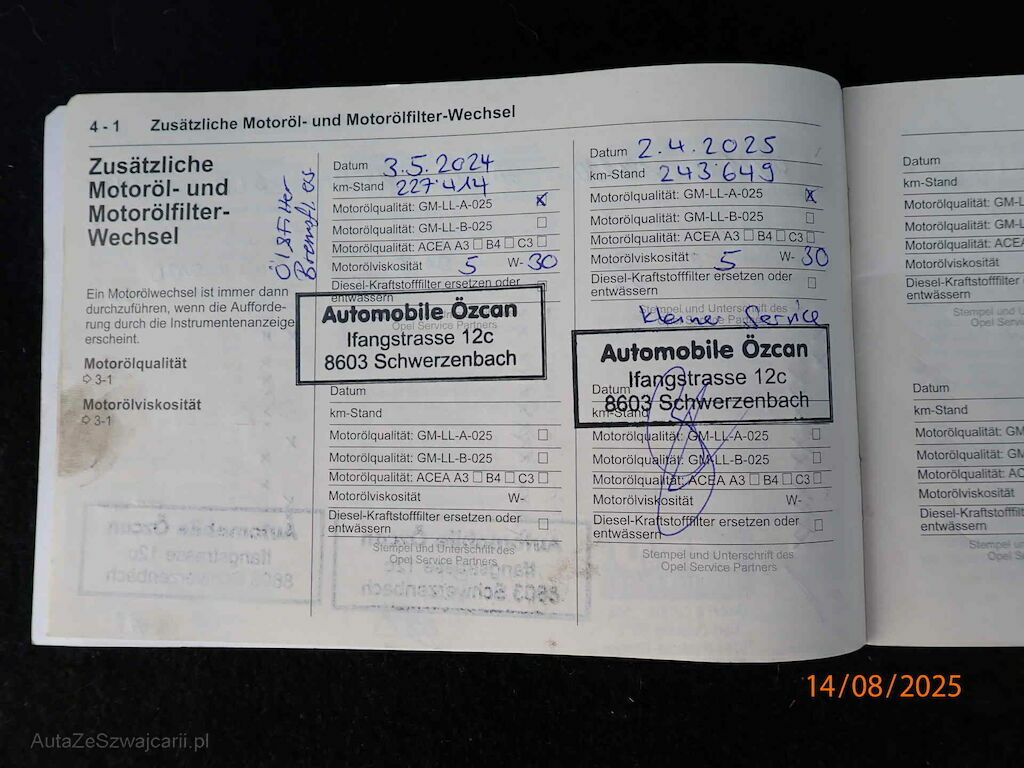 4 - 1 Zusätzliche Motoröl- und Motorölfilter-Wechsel
Zusätzliche
Motoröl- und
Motorölfilter-
Wechsel
Ein Motorölwechsel ist immer dann
durchzuführen, wenn die Aufforde-
rung durch die Instrumentenanzeige
erscheint.
Motorölqualität
⇨ 3-1
Motorölviskosität
⇨ 3-1
Datum 3.5.2024
km-Stand 227'414
Motorölqualität: GM-LL-A-025 ☒
Motorölqualität: GM-LL-B-025 ☐
Motorölqualität: ACEA A3 ☐ B4 ☐ C3 ☐
Motorölviskosität 5 W- 30
Diesel-Kraftstofffilter ersetzen oder
entwässern
Opel Service Partners
Automobile Özcan
Ifangstrasse 12c
8603 Schwerzenbach
Datum
km-Stand
Motorölqualität: GM-LL-A-025 ☐
Motorölqualität: GM-LL-B-025 ☐
Motorölqualität: ACEA A3 ☐ B4 ☐ C3 ☐
Motorölviskosität W-
Diesel-Kraftstofffilter ersetzen oder
entwässern ☐
Stempel und Unterschrift des
Opel Service Partners
Datum 2.4.2025
km-Stand 243'649
Motorölqualität: GM-LL-A-025 ☒
Motorölqualität: GM-LL-B-025 ☐
Motorölqualität: ACEA A3 ☐ B4 ☐ C3 ☐
Motorölviskosität 5 W- 30
Diesel-Kraftstofffilter ersetzen oder
entwässern ☐
Stempel und Unterschrift des
Kleiner Service
Automobile Özcan
Ifangstrasse 12c
8603 Schwerzenbach
Datum
km-Stand
Motorölqualität: GM-LL-A-025 ☐
Motorölqualität: GM-LL-B-025 ☐
Motorölqualität: ACEA A3 ☐ B4 ☐ C3 ☐
Motorölviskosität W-
Diesel-Kraftstofffilter ersetzen oder
entwässern ☐
Stempel und Unterschrift des
Opel Service Partners
Datum
km-Stand
Motorölqualität: GM-L
Motorölqualität: GM-L
Motorölqualität: ACEA
Motorölviskosität
Diesel-Kraftstofffilter
entwässern
Stempel und
Opel Servi
Datum
km-Stand
Motorölqualität: GM
Motorölqualität: GM
Motorölqualität: AC
Motorölviskosität
Diesel-Kraftstofffilter
entwässern
Stempel u
Opel Se
14/08/2025
AutaZeSzwajcarii.pl